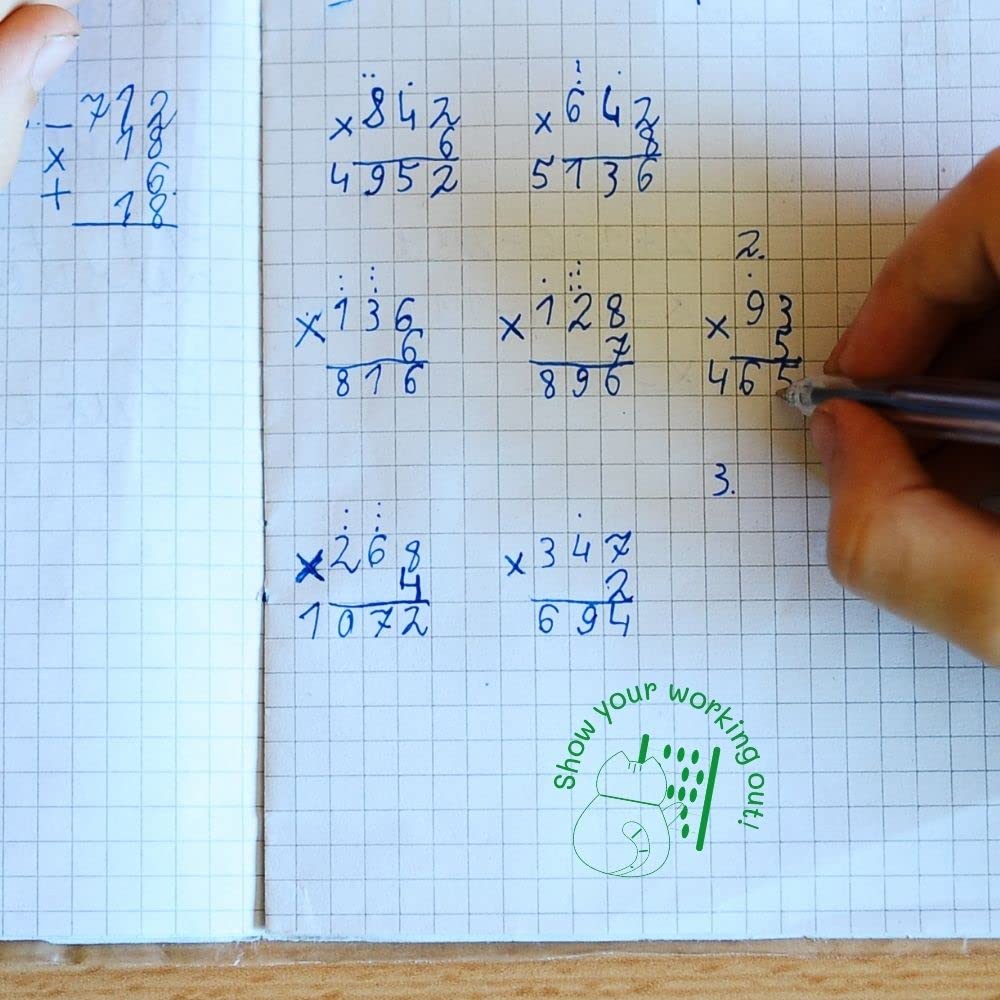 - 712
x 18
6
+ 18
x 842
6
4952
x 642
8
5136
x 136
6
816
x 128
7
896
2.
x 93
5
465
3.
x 268
4
1072
x 347
2
694
Show your working out!